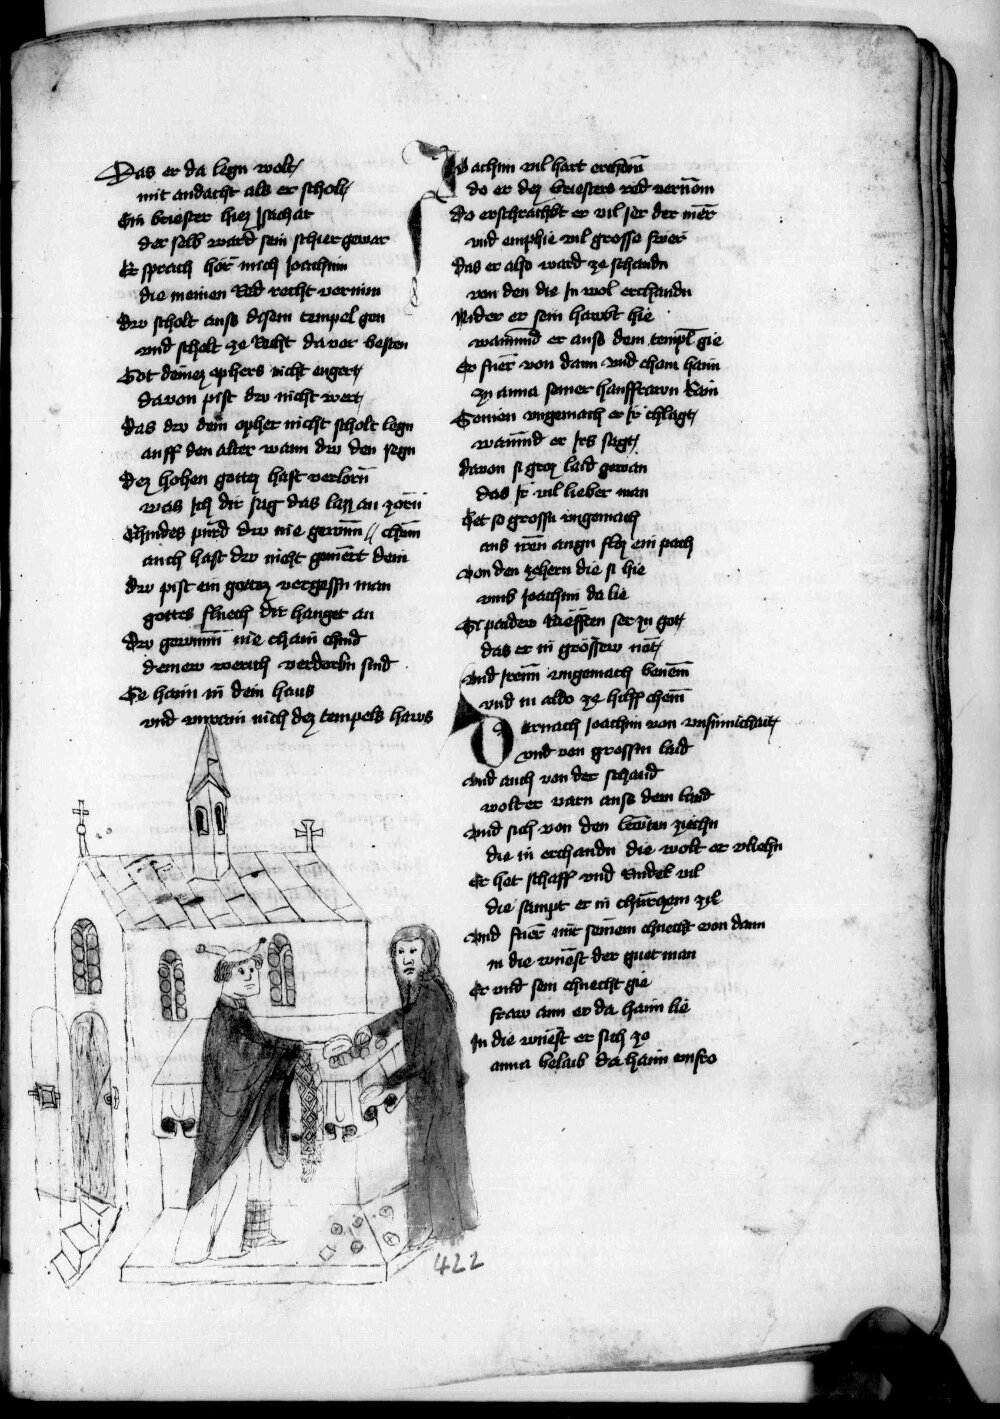 Das er da legn wolt
mit andacht als er scholt
Ein briester hiez Jsachar
der selb ward sein schier gewar
Er sprach hor mich Joachim
die meinen Red recht vernim
drv scholt auss disem tempel gen
vnd scholt ze Reht da vor besten
Got deinez ophers nicht engert
davon pist drv nicht wert
das drv dein opher nicht scholt legn
auff den alter wann drv den segn
dez hohen gottez hast verlorn
was ich dir sag das laz an zorn
Chindes purd drv nie gewunn cham
auch hast drv nicht gemert dein
drv pist ein gottez vergessn man
gottes fluech dir hanget an
drv gewunn nie chain chind
deinew werich verdorbn sind
Ge haim in dein haus
vnd vnrain nich dez tempels haws
Joachim vil hart erchom
do er dez briesters red vernom
do erschrachht er vil ser der mer
vnd emphie vil grosse swer
das er also ward ze schandn
von den die Jn wol erchandn
Nider er sein hawbt hie
wainund er auss dem templ gie
Er fuer von dann vnd cham haim
zu anna seiner hausfrawn Rain
Seinen vngemach er Jr chlagt
wainund er irs sagt
davon si groz laid gewan
das Jr vil lieber man
het so grossn vngemach
aus iren augn floz ein pach
von den zehern die si hie
vmb Joachim da lie
Si paidew Riefften ser zu got
das er in grossew not
vnd irem vngemach benem
vnd in aldo ze hilff chem
Dernach Joachim von vnsinnichait
vnd von grossm laid
vnd auch von der schand
wolt er varn auss dem land
vnd sich von den lewten ziechn
die in erchandn die wolt er vliehn
Er het schaff vnd Rinder vil
die sampt er in churczem zil
vnd fuer mit seinem chnecht von dann
in die wuest der guet man
Er vnd sein chnecht gie
fraw ann er da haim lie
Jn die wuest er sich zo
anna belaib da haim vnfro
422